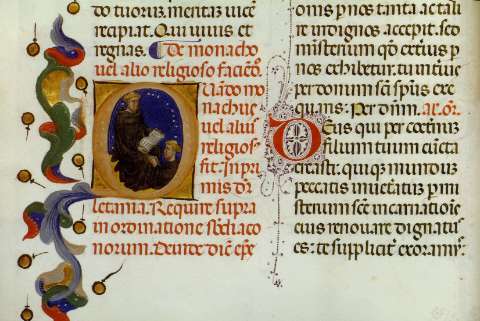 do tuorum. mentam uice
recipiat. Qui uiuis et
regnas. De monacho
uel alio religioso faciēdo.
Quando mo
nachus
uel alius
religios⁹
fit. In pri
mis dr̄
letania. Require supra
in ordinatione sb̄diaco
norum. Deinde dic̄ ep̄s
omis pͥnos tanta ac tali
re indignos accepit. sed
misterium quod certius p
nos exhibetur. tu munue
per domum sc̄m sp̄us exe
quaris. Per dn̄m. al. or̄.
Deus qui per coetnū
filium tuum cuncta
creasti. quiq; mundum
peccatis inueteratum per mi
sterium sc̄e incarnationis
eius renouare dignatus
es: te suppliciter exoramus.